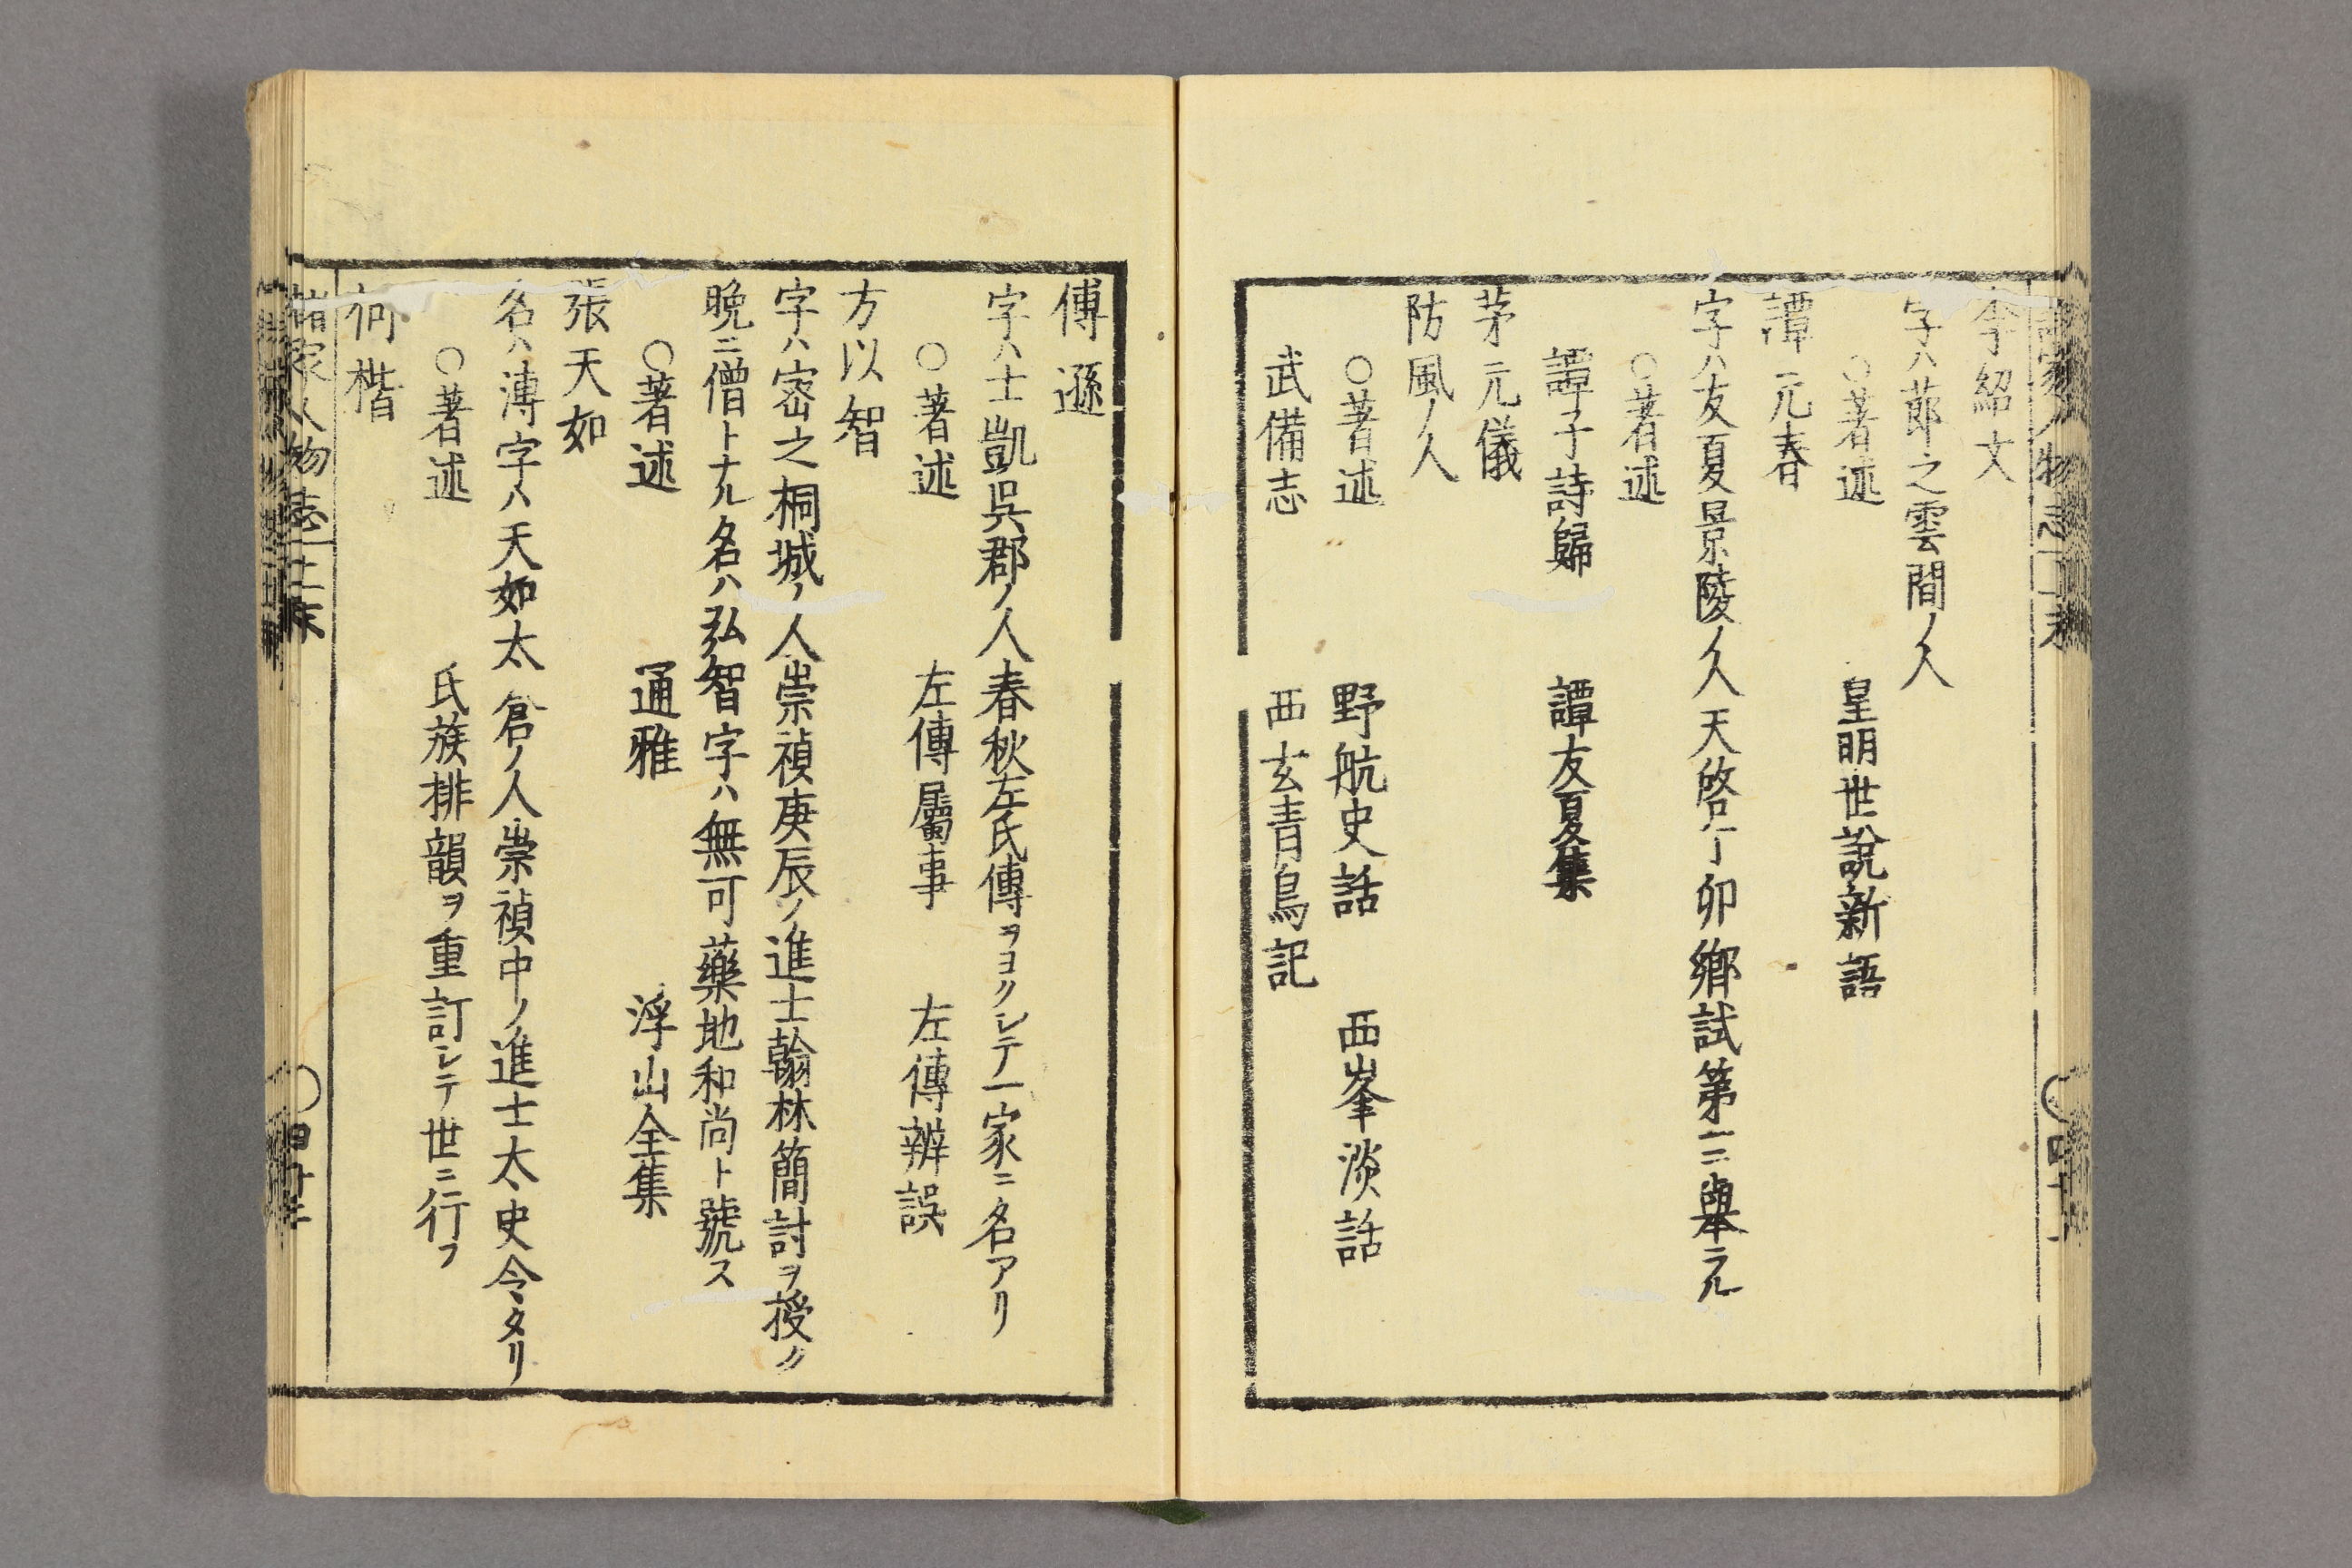 李紹文
字ハ節之雲間ノ人
○著述　皇明世說新語
譚元春
字ハ友夏景陵ノ人天啓丁卯鄉試第一ニ舉ラル
○著述
譚子詩歸　譚友夏集
茅元儀
防風ノ人
○著述　野航史話　西峯淡話
武備志　西玄青鳥記
傅遜
字ハ士凱呉郡ノ人春秋左氏傳ヲヨクシテ一家ニ名アリ
○著述　左傳屬事　左傳辨誤
方以智
字ハ密之桐城ノ人崇禎庚辰ノ進士翰林簡討ヲ授ク
晩ニ僧トナル名ハ弘智字ハ無可藥地和尚ト號ス
○著述　通雅　浮山全集
張天如
名ハ溥字ハ天如太倉ノ人崇禎中ノ進士太史令タリ
○著述　氏族排韻ヲ重訂シテ世ニ行フ
何楷
諸家人物志